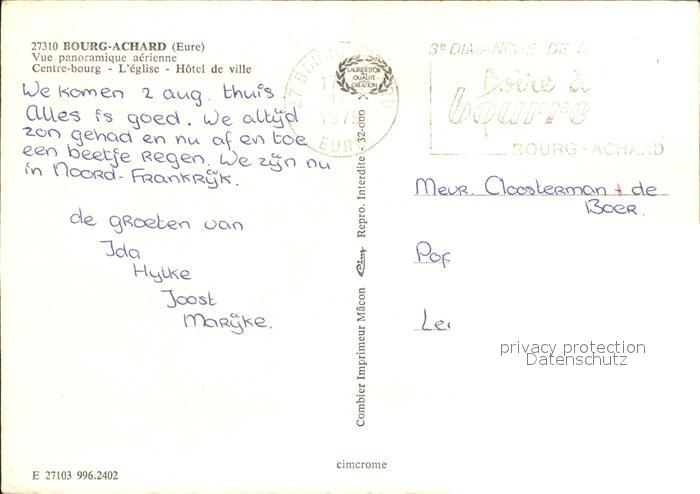 27310 BOURG-ACHARD (Eure)
Vue panoramique aérienne
Centre-bourg - L'église - Hôtel de ville
We komen 2 aug. thuis
Alles is goed. We altijd
zon gehad en nu af en toe
een beetje regen. We zijn nu
in Noord-Frankrijk.
de groeten van
Ida
Hylke
Joost
Marijke.
E 27103 996.2402
LAURIER D'OR
DE LA
QUALITÉ
CRÉATION
27 BOURG
EURE
3e DIMANCHE DE
foire à
bourre
BOURG-ACHARD
Combier Imprimeur Mâcon
Repro. Interdite - 32-000
cimcrome
Mevr. Cloosterman + de
Boer.
Pop
Le
privacy protection
Datenschutz